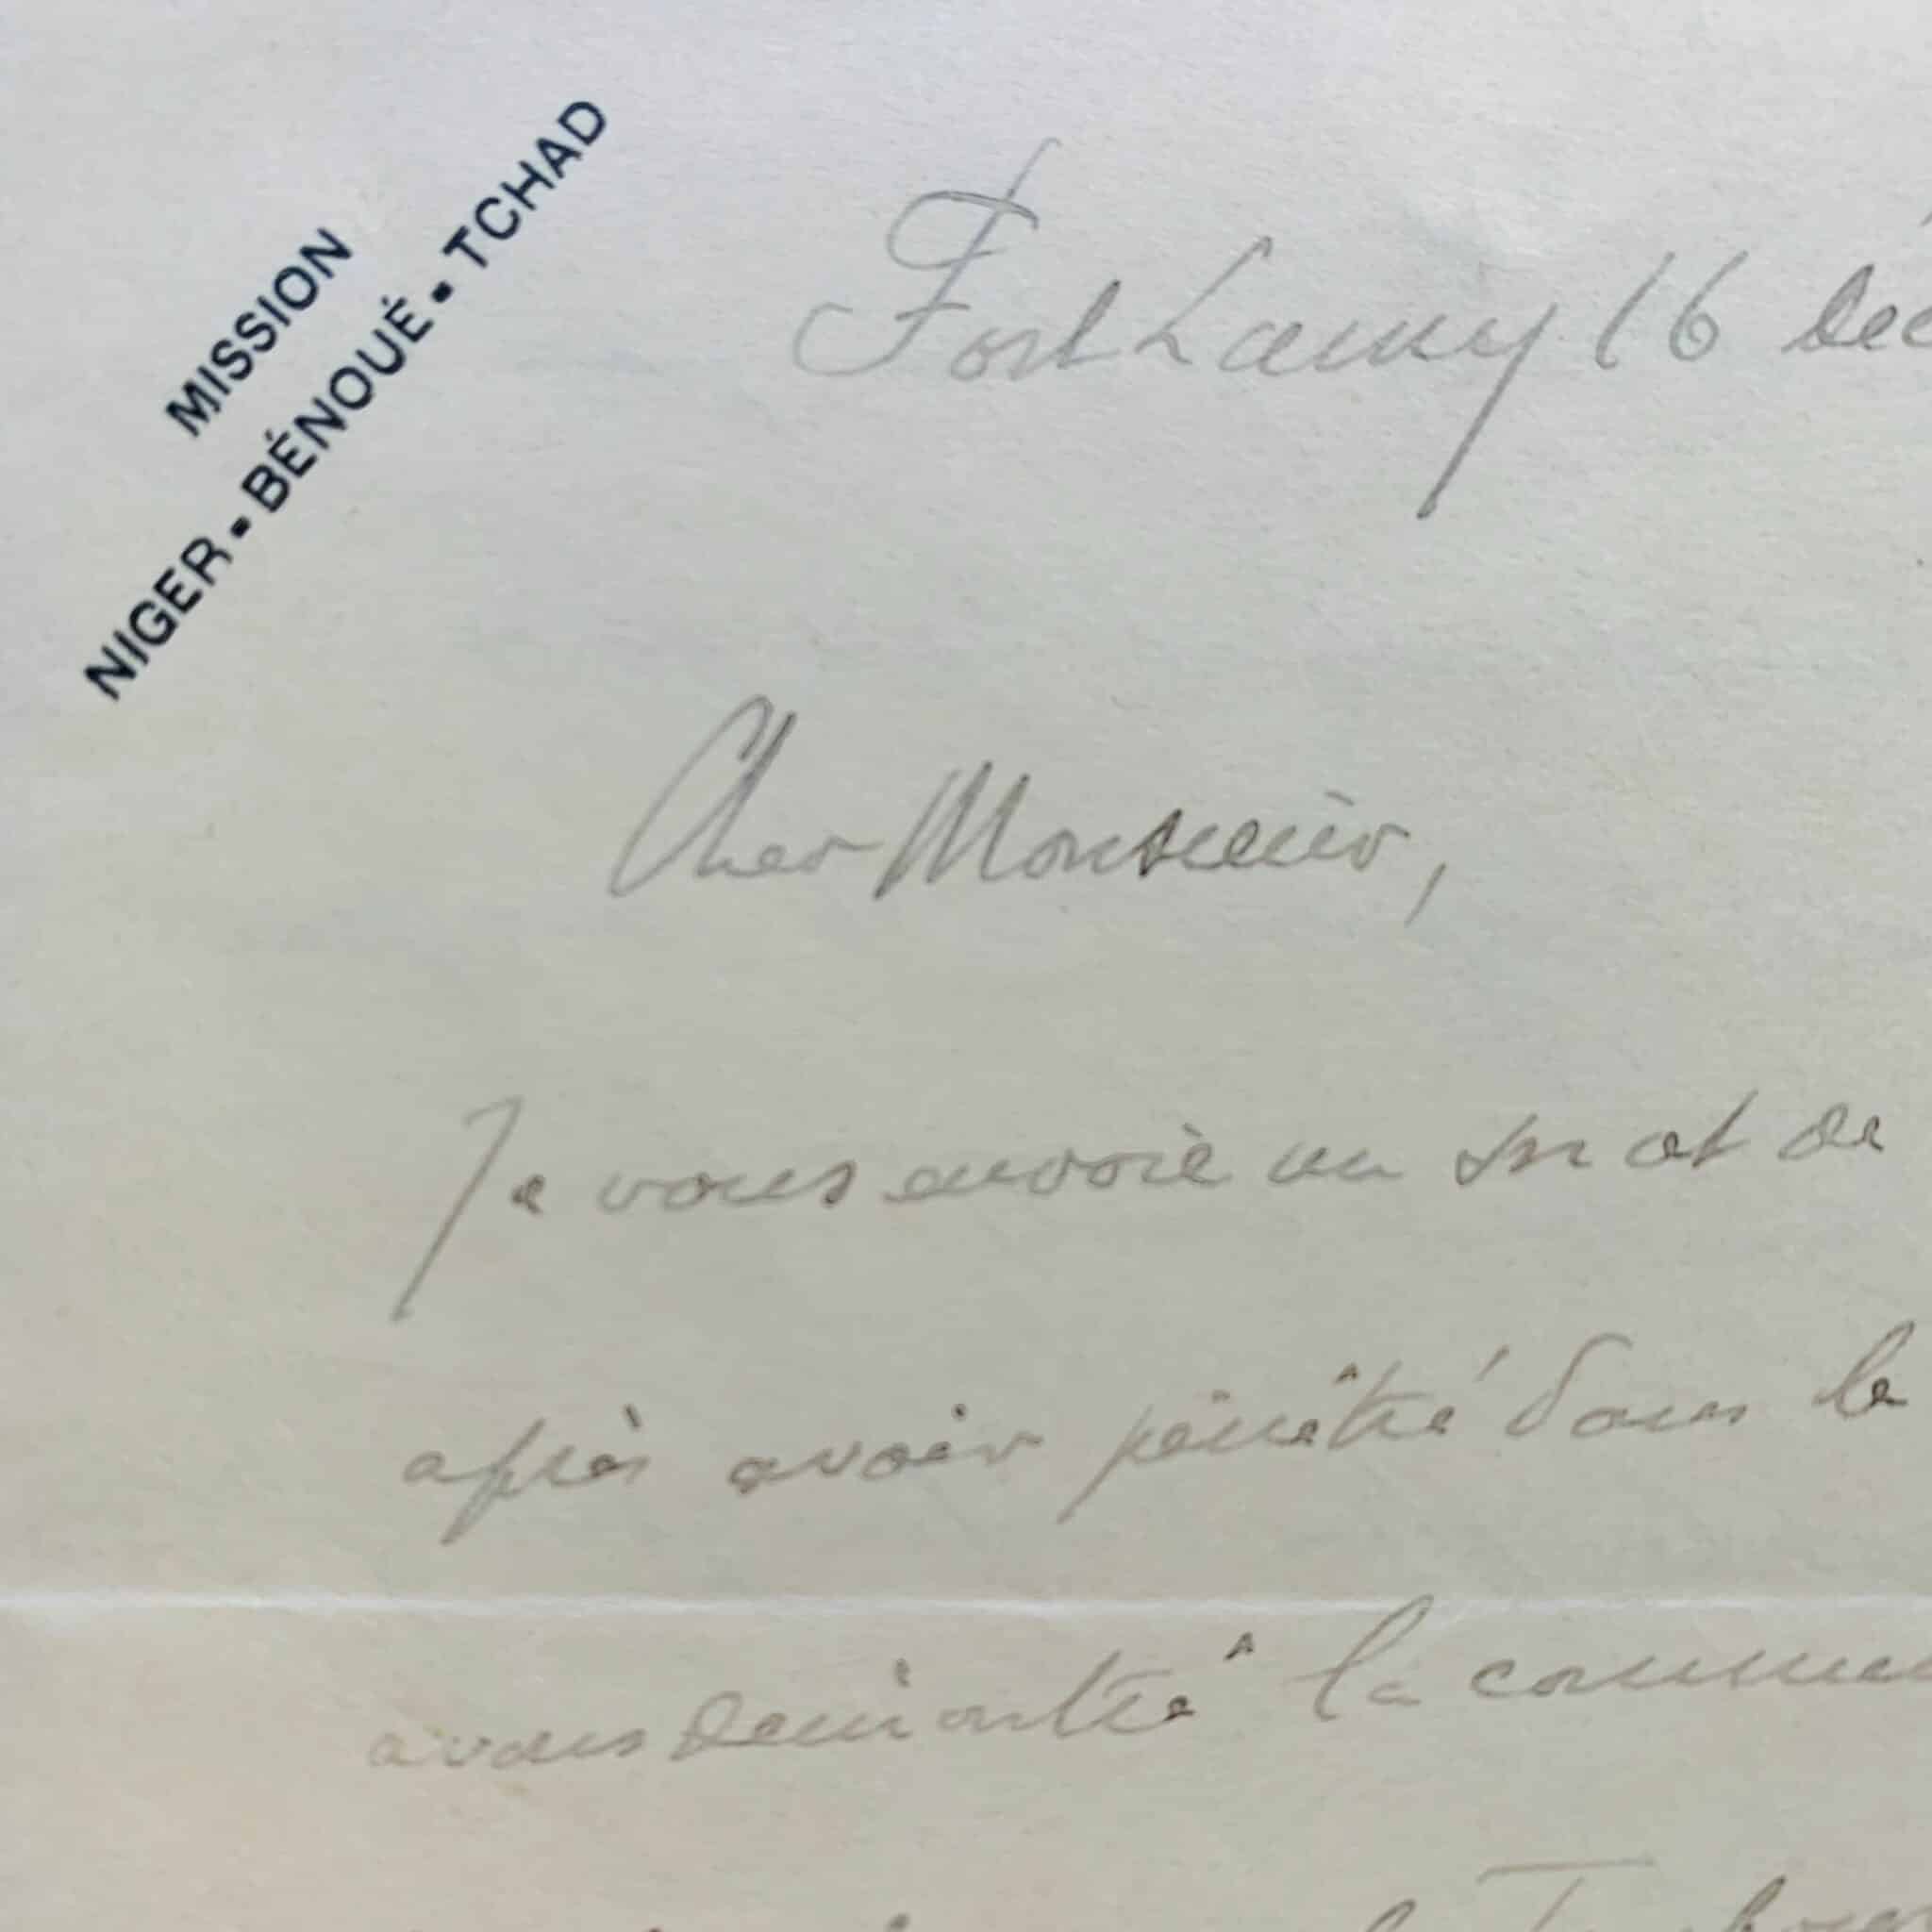 MISSION
NIGER - BÉNOUÉ - TCHAD
Fort Lamy 16 Déc
Cher Monsieur,
Je vous envoie un mot de
après avoir pénêtré dans le
avons démontré la